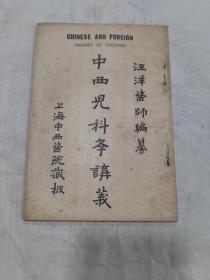 CHINESE AND FOREIGN
汪洋醫師編纂
中西兒科學講義
上海中西醫院藏板